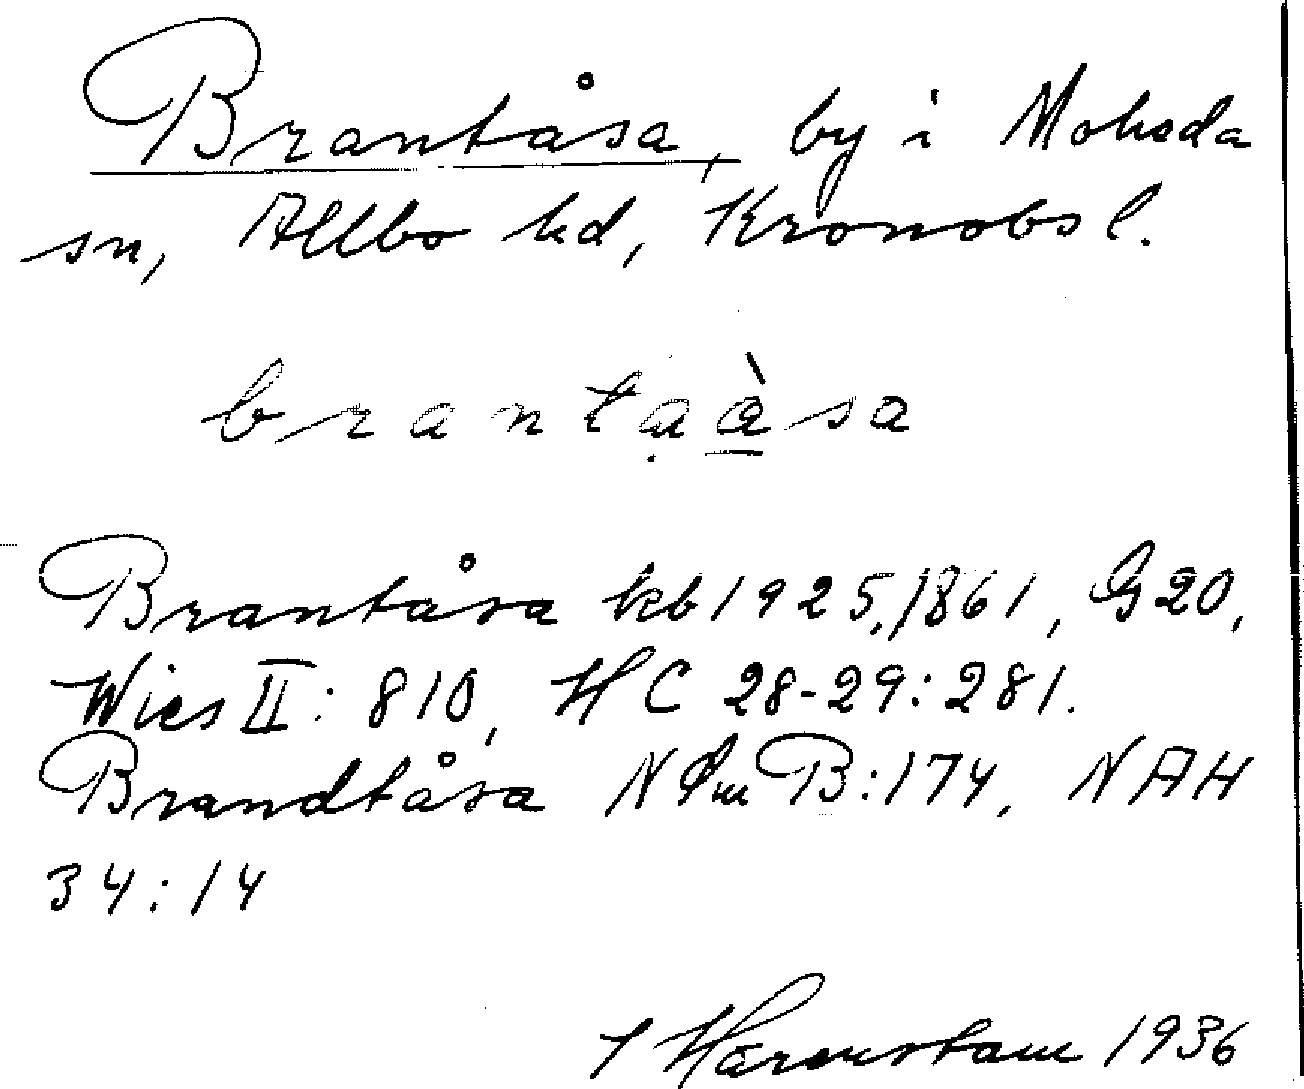 Brantåsa, by i Moheda
sn, Allbo hd, Kronobs l.
brantạà̲sa
Brantåsa kb 1925, 1861, G20,
Wies II: 810, HC 28-29: 281.
Brandtåsa N Sm B: 174, NAH
34: 14
Härenstam 1936